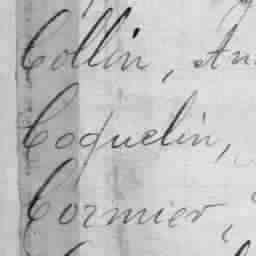 Collin, An
Coquelin,
Cormier,